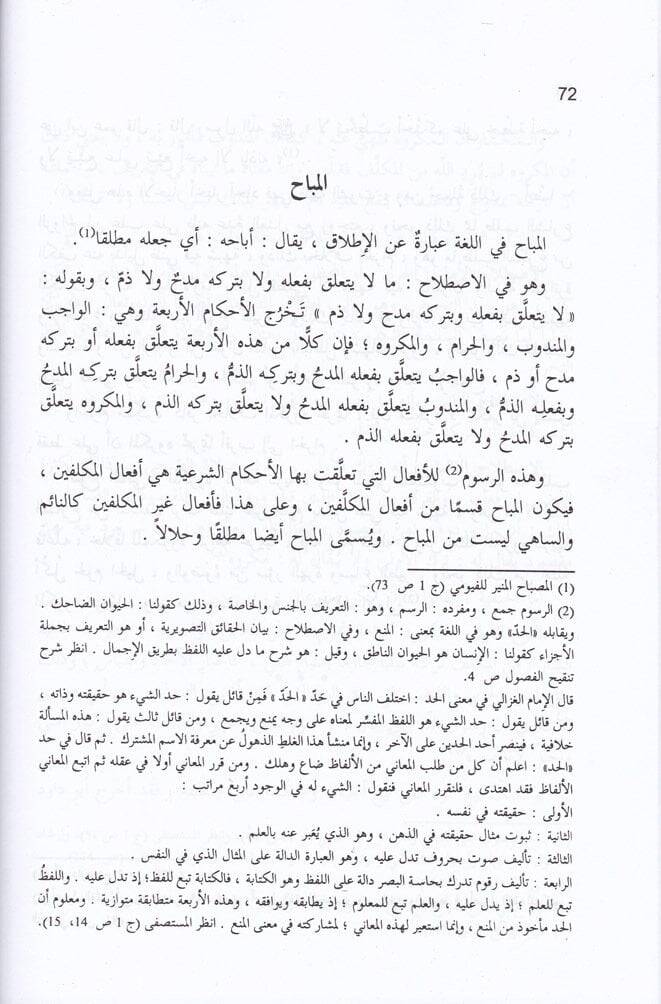 72
المباح
المباح في اللغة عبارةٌ عن الإِطلاق ، يقال : أباحه : أي جعله مطلقا(1).
وهو في الاصطلاح : ما لا يتعلق بفعله ولا بتركه مدحٌ ولا ذمّ ، وبقوله :
« لا يتعلَّق بفعله وبتركه مدح ولا ذم » تَخْرُج الأحكام الأربعة وهي : الواجب
والمندوب ، والحرام ، والمكروه ؛ فإن كلًّا من هذه الأربعة يتعلَّق بفعله أو بتركه
مدح أو ذم ، فالواجبُ يتعلَّق بفعله المدحُ وبتركِه الذمُّ ، والحرامُ يتعلَّق بتركِه المدحُ
وبفعلِه الذمُّ ، والمندوبُ يتعلَّق بفعله المدحُ ولا يتعلَّق بتركه الذم ، والمكروه يتعلَّق
بتركه المدحُ ولا يتعلَّق بفعله الذم .
وهذه الرسوم(2) للأفعال التي تعلَّقت بها الأحكام الشرعية هي أفعال المكلفين ،
فيكون المباح قسمًا من أفعال المكلَّفين ، وعلى هذا فأفعال غير المكلفين كالنائم
والساهي ليست من المباح . ويُسمَّى المباح أيضا مطلقًا وحلالاً .
(1) المصباح المنير للفيومي (ج 1 ص 73).
(2) الرسوم جمع ، ومفرده : الرسم ، وهو : التعريف بالجنس والخاصة ، وذلك كقولنا : الحيوان الضاحك .
ويقابله «الحدّ» وهو في اللغة بمعنى : المنع ، وفي الاصطلاح : بيان الحقائق التصويرية ، أو هو التعريف بجملة
الأجزاء كقولنا : الإنسان هو الحيوان الناطق ، وقيل : هو شرح ما دل عليه اللفظ بطريق الإجمال . انظر شرح
تنقيح الفصول ص 4.
قال الإمام الغزالي في معنى الحد : اختلف الناس في حَدّ « الحَدّ » فَمِنْ قائل يقول : حد الشيء هو حقيقته وذاته ،
ومن قائل يقول : حد الشيء هو اللفظ المفسِّر لمعناه على وجه يمنع ويجمع ، ومن قائل ثالث يقول : هذه المسألة
خلافية ، فينصر أحد الحدين على الآخر ، وإنما منشأ هذا الغلطِ الذهولُ عن معرفة الاسم المشترك . ثم قال في حد
«الحد» : اعلم أن كل من طلب المعاني من الألفاظ ضاع وهلك . ومن قرر المعاني أولا في عقله ثم اتبع المعاني
الألفاظ فقد اهتدى ، فلنقرر المعاني فنقول : الشيء له في الوجود أربعُ مراتب :
الأولى : حقيقته في نفسه .
الثانية : ثبوت مثال حقيقته في الذهن ، وهو الذي يُعَبر عنه بالعلم .
الثالثة : تأليف صوت بحروف تدل عليه ، وهو العبارة الدالة على المثال الذي في النفس .
الرابعة : تأليف رقوم تدرك بحاسة البصر دالة على اللفظ وهو الكتابة ، فالكتابة تبع للفظ؛ إذ تدل عليه . واللفظُ
تبع للعلم ؛ إذ يدل عليه ، والعلم تبع للمعلوم ؛ إذ يطابقه ويوافقه ، وهذه الأربعة متطابقة متوازية . ومعلوم أن
الحد مأخوذ من المنع ، وإنما استعير لهذه المعاني ؛ لمشاركته في معنى المنع . انظر المستصفى (ج 1 ص 14، 15).